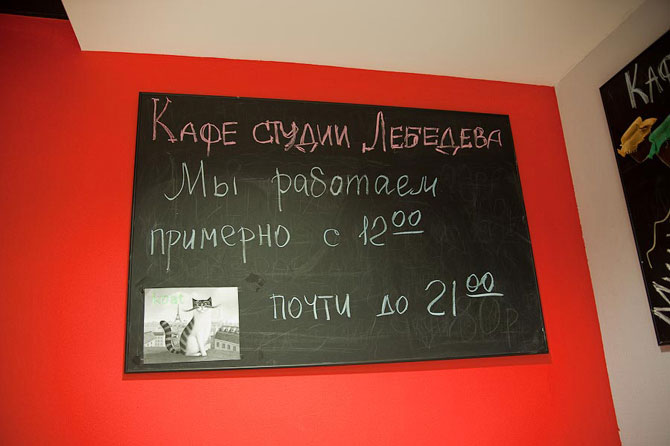 Кафе студии Лебедева
Мы работаем
примерно с 12 00
почти до 21 00